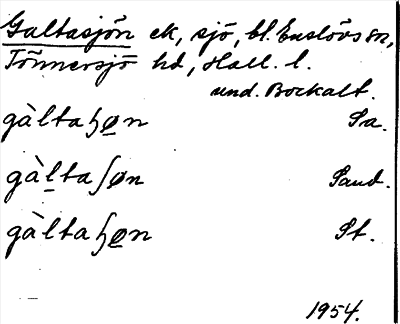 Galtasjön ek, sjö, bl. Enslövs sn,
Tönnersjö hd, Hall. l.
und. Bockalt.
gàltaɧøn Sa.
gàltaʃøn Sand.
gàltaɧøn St.
1954.